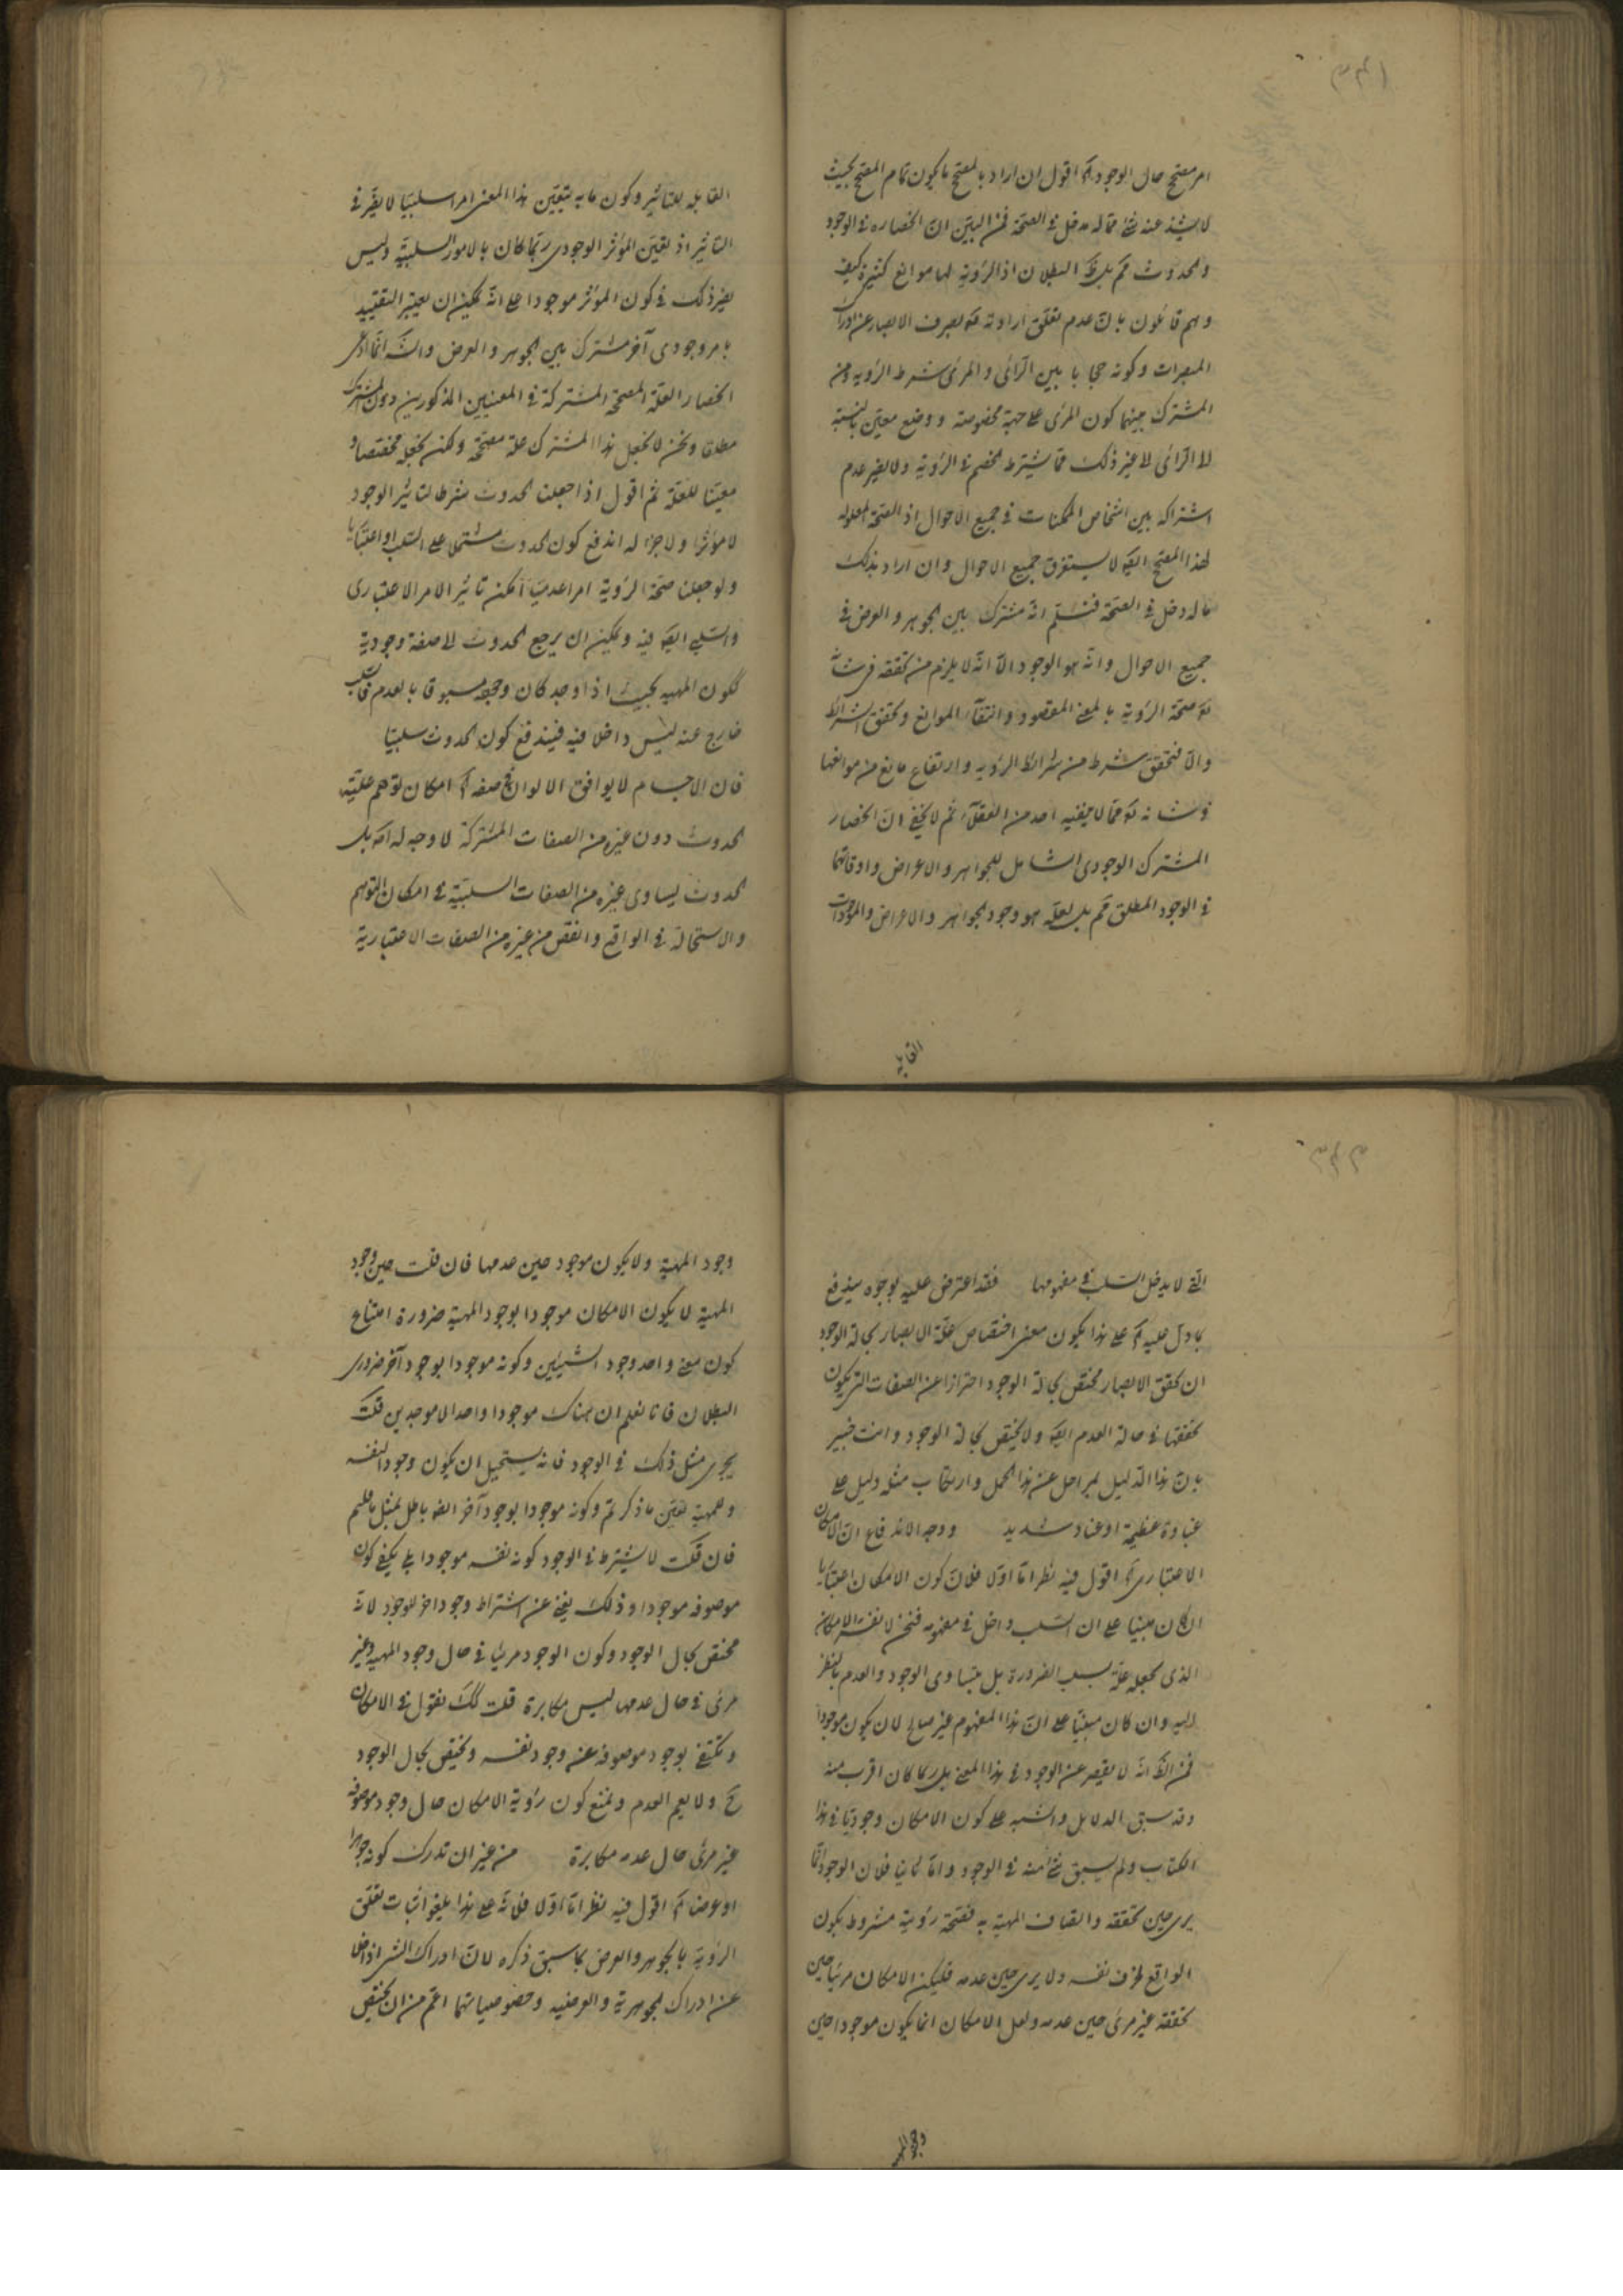 امر مصحح حال الوجود آه اقول ان اراد بالمصحح ما يكون تمام المصحح بحيث
لا يشذ عنه شئ مما له مدخل فى الصحة فمن البين ان انحصاره فى الوجود
والحدوث مم بل ظ البطلان اذ الرؤية لها موانع كثيرة كيف
وهم قائلون بان عدم تعلق ارادته تع بصرف الابصار عن ادراك
المبصرات وكونه حجابا بين الرائى والمرئى شرط الرؤية ومن
المشترك بينهما كون المرئى على جهة مخصوصة ووضع معين بالنسبة
الى الرائى الى غير ذلك مما يشترط الخصم فى الرؤية ولا يضر عدم
اشتراكه بين اشخاص الممكنات فى جميع الاحوال اذ الصحة المعلولة
لهذا المصحح ايضا لا يستغرق جميع الاحوال وان اراد بذلك
ما له دخل فى الصحة فنسلم انه مشترك بين الجوهر والعرض فى
جميع الاحوال وانه هو الوجود الا انه لا يلزم من تحققه فى شانه
تع صحة الرؤية بالمعنى المقصود وانتفاء الموانع وتحقق الشرائط
والا فتحقق شرط من شرائط الرؤية وارتفاع مانع من موانعها
فى شانه تع مما لا ينفيه احد من العقلاء ثم لا يخفى ان انحصار
المشترك الوجودى الشامل للجواهر والاعراض واوقاتها
فى الوجود المطلق مم بل لعله هو وجود الجواهر والاعراض والموجودات
القابلة
القابلة للتاثير وكون ما به يتعين هذا المعنى امرا سلبيا لا يضر فى
التاثير اذ تعين المؤثر الوجودى ربما كان بالامور السلبية وليس
يضر ذلك فى كون المؤثر موجودا على انه يمكن ان يعتبر التقييد
بامر وجودى آخر مشترك بين الجوهر والعرض والشـ انما ادعى
انحصار العلة المصححة المشتركة فى المعنيين المذكورين دون المشترك
مطلقا ونحن لا نجعل هذا المشترك علة مصححة ولكن نجعله مخصصا و
معينا للعلة ثم اقول اذا جعلت الحدوث شرطا لتاثير الوجود
لا مؤثرا ولا جزءا له اندفع كون الحدوث مشتملا على السلب او اعتباريا
ولو جعلت صحة الرؤية امرا عدميا امكن تاثير الامر الاعتبارى
والسلبى ايضا فيه ويمكن ان يرجع الحدوث الى صفة وجودية
ككون المهية بحيث اذا وجد كان وجوده مسبوقا بالعدم فالسلب
خارج عنه ليس داخلا فيه فيندفع كون الحدوث سلبيا
فان الاجسام لا يوافق الالوان فى صفة آه امكان توهم علية
الحدوث دون غيره من الصفات المشتركة لا وجه له اصلا بل
الحدوث يساوى غيره من الصفات السلبية فى امكان التوهم
والاستحالة فى الواقع وانقص من غيره من الصفات الاعتبارية
التى لا يدخل السلب فى مفهومها فقد اعترض عليه بوجوه يندفع
بما دل عليه آه على هذا يكون معنى اختصاص علة الابصار بحالة الوجود
ان تحقق الابصار مختص بحالة الوجود احترازا عن الصفات التى يكون
تحققها فى حالة العدم ايضا ولا يختص بحالة الوجود وانت خبير
بان هذا الدليل بمراحل عن هذا المحمل وارتكاب مثله دليل على
غباوة عظيمة او عناد شديد ووجه الاندفاع ان الامكان
الاعتبارى آه اقول فيه نظر اما اولا فلان كون الامكان اعتباريا
ان كان مبنيا على ان السلب داخل فى مفهومه فنحن لا نفسر الامكان
الذى نجعله علة بسلب الضرورة بل بتساوى الوجود والعدم بالنظر
اليه وان كان مبنيا على ان هذا المفهوم غير صالح لان يكون موجودا
فمن الظ انه لا يقصر عن الوجود فى هذا المعنى بل ربما كان اقرب منه
وقد سبق الدلايل والشبه على كون الامكان وجوديا فى هذا
الكتاب ولم يسبق شئ منه فى الوجود واما ثانيا فلان الوجود انما
يرى حين تحققه واتصاف المهية به فصحة رؤية مشروط بكون
الواقع ظرف نفسه ولا يرى حين عدمه فليكن الامكان مرئيا حين
تحققه غير مرئى حين عدمه ولعل الامكان انما يكون موجودا حين
وجود المهية
وجود المهية ولا يكون موجود حين عدمها فان قلت حين وجود
المهية لا يكون الامكان موجودا بوجود المهية ضرورة امتناع
كون معنى واحد وجود الشيئين وكونه موجودا بوجود آخر ضرورى
البطلان فانا نعلم ان هناك موجودا واحدا لا موجدين قلت
يجرى مثل ذلك فى الوجود فانه يستحيل ان يكون وجود النفسه
وللمهية بعين ما ذكرتم وكونه موجودا بوجود آخر ايضا باطل بمثل ما قلتم
فان قلت لا يشترط فى الوجود كونه نفسه موجودا بل يكفى كون
موصوفه موجودا وذلك يغنى عن اشتراط وجود اخر للوجود لانه
مختص بحال الوجود وكون الوجود مرئيا فى حال وجود المهية وغير
مرئى فى حال عدمها ليس مكابرة قلت كك نقول فى الامكان
ونكتفى بوجود موصوفه عن وجود نفسه ويختص بحال الوجود
ح ولا يعم العدم ونمنع كون رؤية الامكان حال وجود موصوفه
غير مرئى حال عدمه مكابرة من غير ان تدرك كونه جوهرا
او عرضا آه اقول فيه نظر اما اولا فلانه على هذا يلغو اثبات تعلق
الرؤية بالجوهر والعرض بما سبق ذكره لان ادراك الشئ اذا خلا
عن ادراك الجوهرية والعرضية وخصوصياتهما اعم من ان يختص